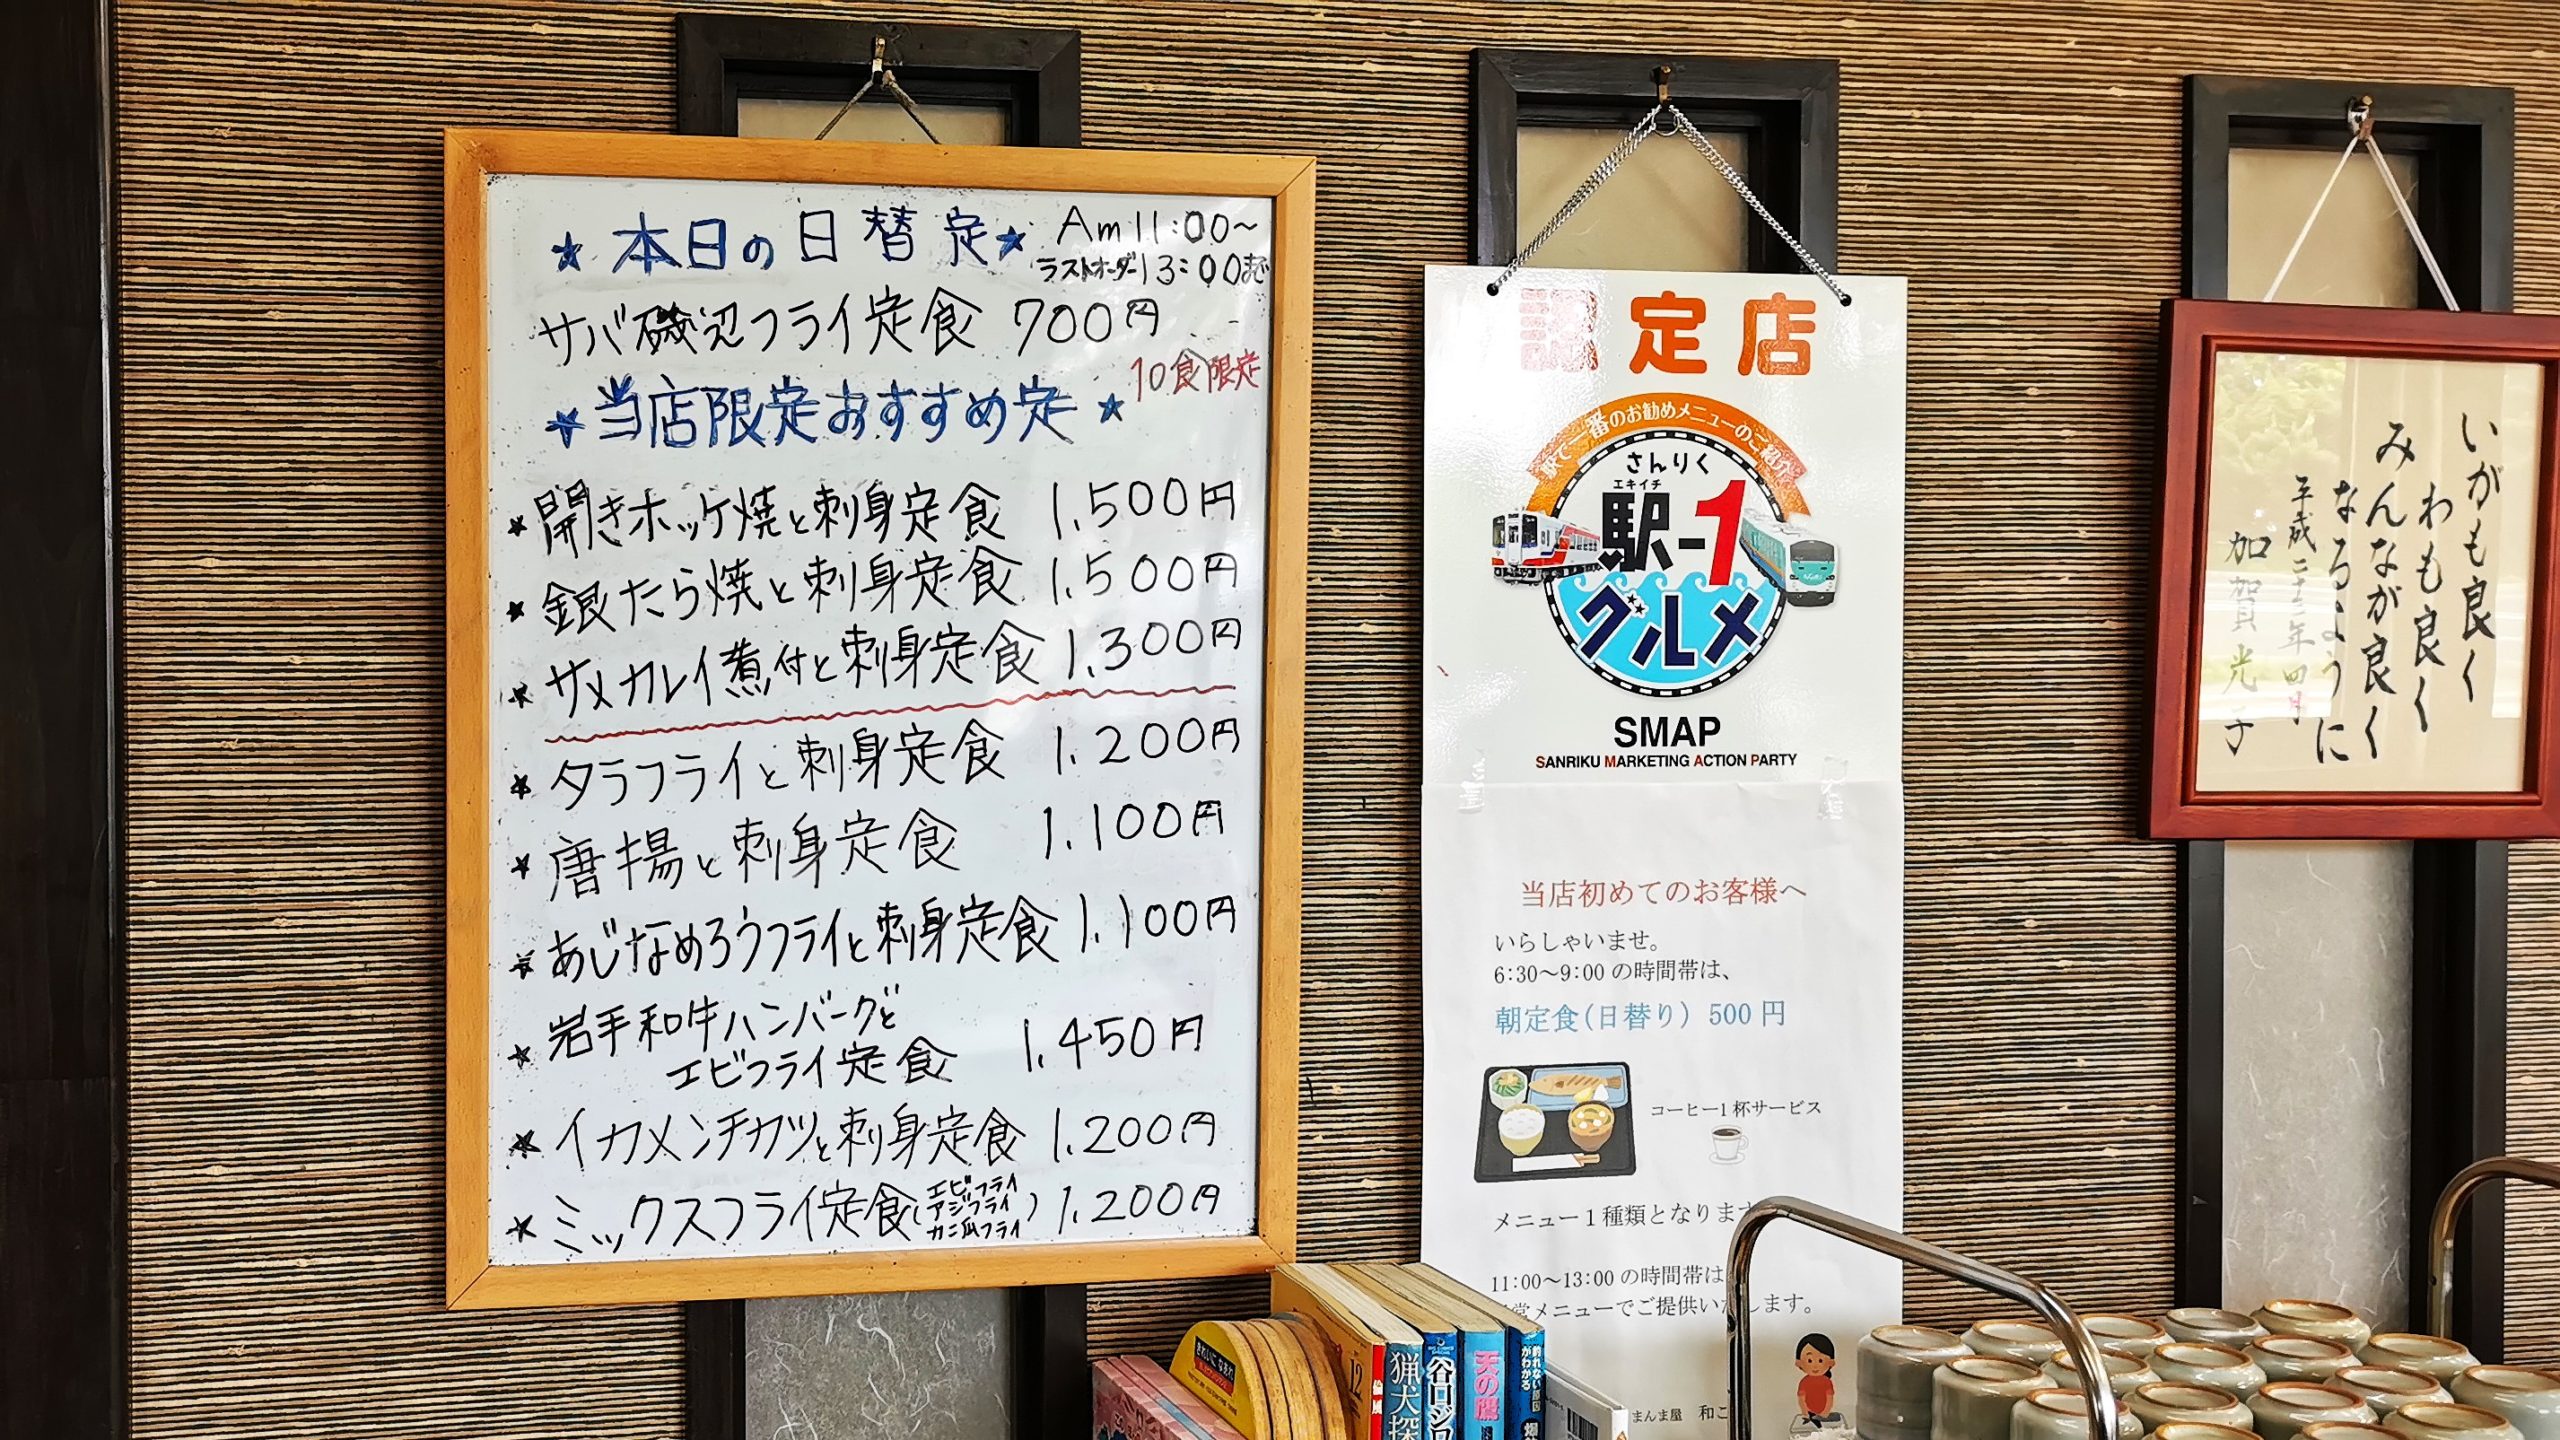 ★本日の日替定★
Am11:00〜
ラストオーダー13:00まで
サバ磯辺フライ定食 700円
10食限定
★当店限定おすすめ定★
★開きホッケ焼と刺身定食 1,500円
★銀たら焼と刺身定食 1,500円
★サメカレイ煮付と刺身定食 1,300円
★タラフライと刺身定食 1,200円
★唐揚と刺身定食 1,100円
★あじなめろうフライと刺身定食 1,100円
★岩手和牛ハンバーグと
エビフライ定食 1,450円
★イカメンチカツと刺身定食 1,200円
★ミックスフライ定食(エビフライ
アジフライ
カニ爪フライ) 1,200円
認定店
駅で一番のお勧めメニューのご紹介
さんりく
エキイチ
駅-1
グルメ
SMAP
SANRIKU MARKETING ACTION PARTY
当店初めてのお客様へ
いらしゃいませ。
6:30〜9:00の時間帯は、
朝定食(日替り) 500円
コーヒー1杯サービス
メニュー1種類となります
11:00〜13:00の時間帯は
常メニューでご提供いたします。
まんま屋 和こ
いがも良く
わも良く
みんなが良く
なるように
平成二十三年四月
加賀光子
きれいになあれ
12
猟犬探
谷口ジロ
天の鷹
釣れない原因
がわかる